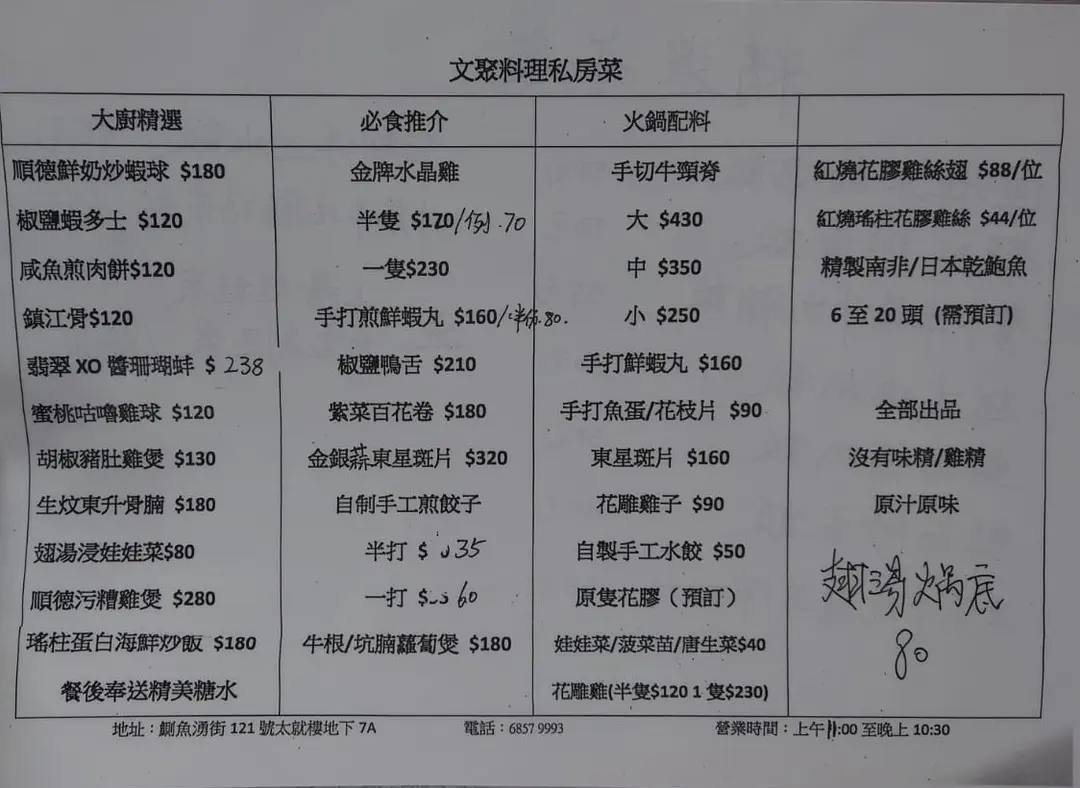 文聚料理私房菜
大廚精選
順德鮮奶炒蝦球 $180
椒鹽蝦多士 $120
咸魚煎肉餅$120
鎮江骨$120
翡翠 XO 醬珊瑚蚌 $ 238
蜜桃咕嚕雞球 $120
胡椒豬肚雞煲 $130
生炆東升骨腩 $180
翅湯浸娃娃菜$80
順德污糟雞煲 $280
瑤柱蛋白海鮮炒飯 $180
餐後奉送精美糖水
必食推介
金牌水晶雞
半隻 $120/例.70
一隻$230
手打煎鮮蝦丸 $160/半份.80.
椒鹽鴨舌 $210
紫菜百花卷 $180
金銀蒜東星斑片 $320
自制手工煎餃子
半打 $ 35
一打 $ 60
牛根/坑腩蘿蔔煲 $180
火鍋配料
手切牛頸脊
大 $430
中 $350
小 $250
手打鮮蝦丸 $160
手打魚蛋/花枝片 $90
東星斑片 $160
花雕雞子 $90
自製手工水餃 $50
原隻花膠（預訂）
娃娃菜/菠菜苗/唐生菜$40
花雕雞(半隻$120 1 隻$230)
紅燒花膠雞絲翅 $88/位
紅燒瑤柱花膠雞絲 $44/位
精製南非/日本乾鮑魚
6 至 20 頭 (需預訂)
全部出品
沒有味精/雞精
原汁原味
翅湯火鍋底
80
地址：鰂魚湧街 121 號太就樓地下 7A
電話：6857 9993
營業時間：上午11:00 至晚上 10:30